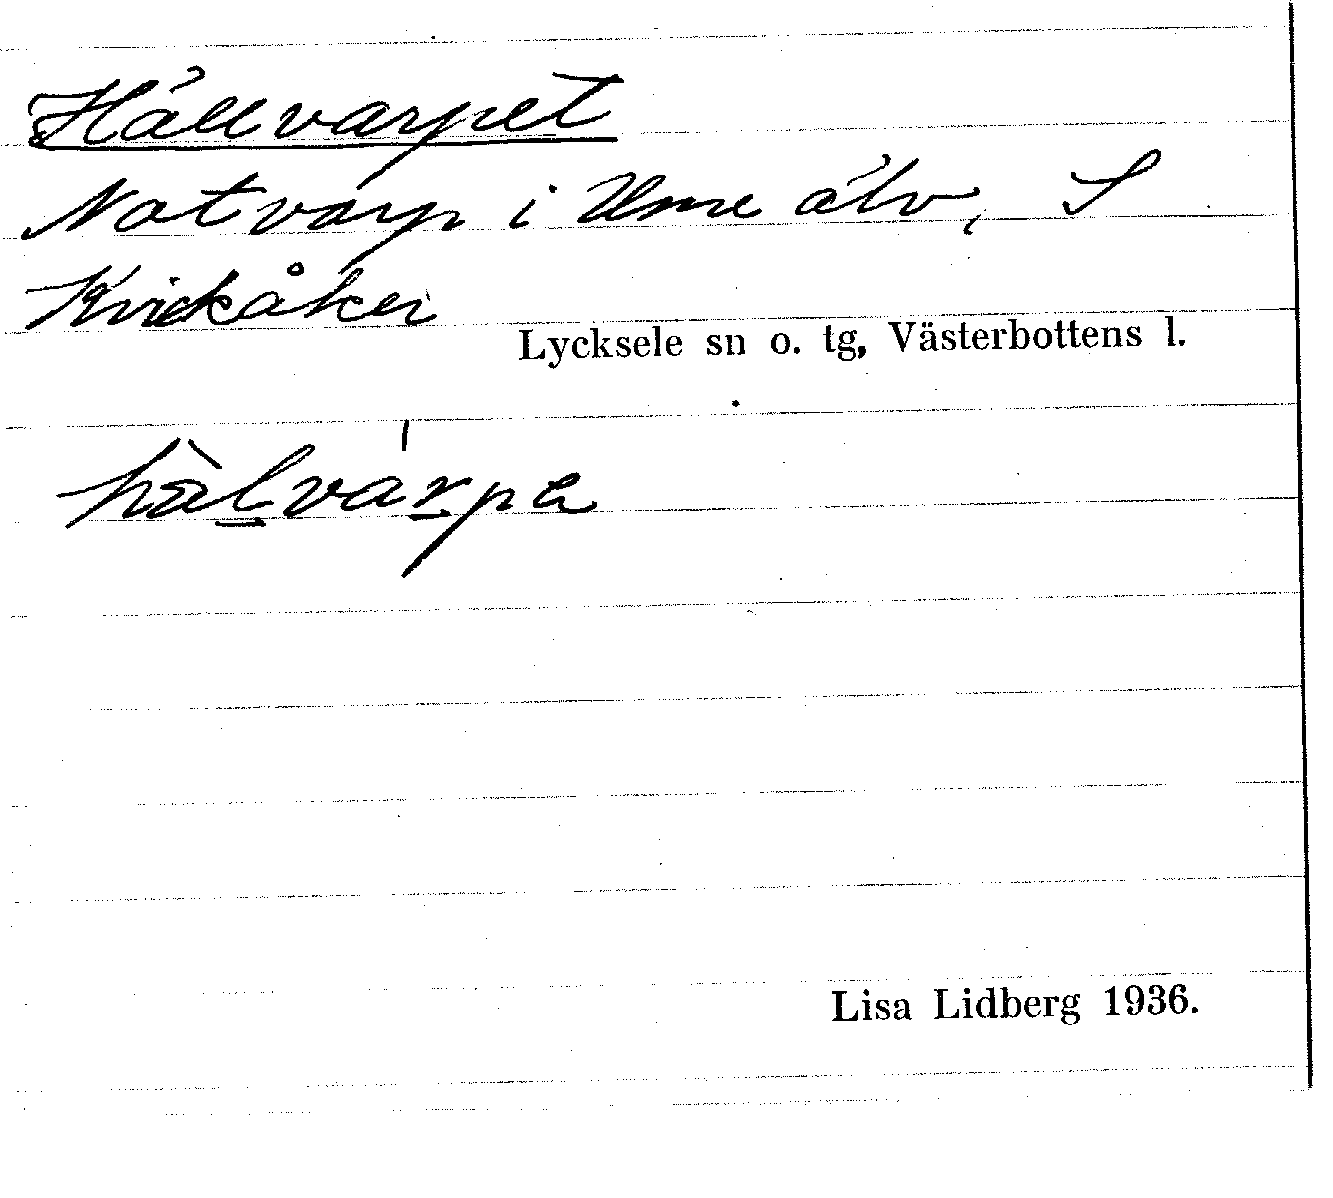 Hällvarpet
Notvarp i Ume älv, S
Kvickåker
Lycksele sn o. tg, Västerbottens l.
hàlvárpa
Lisa Lidberg 1936.